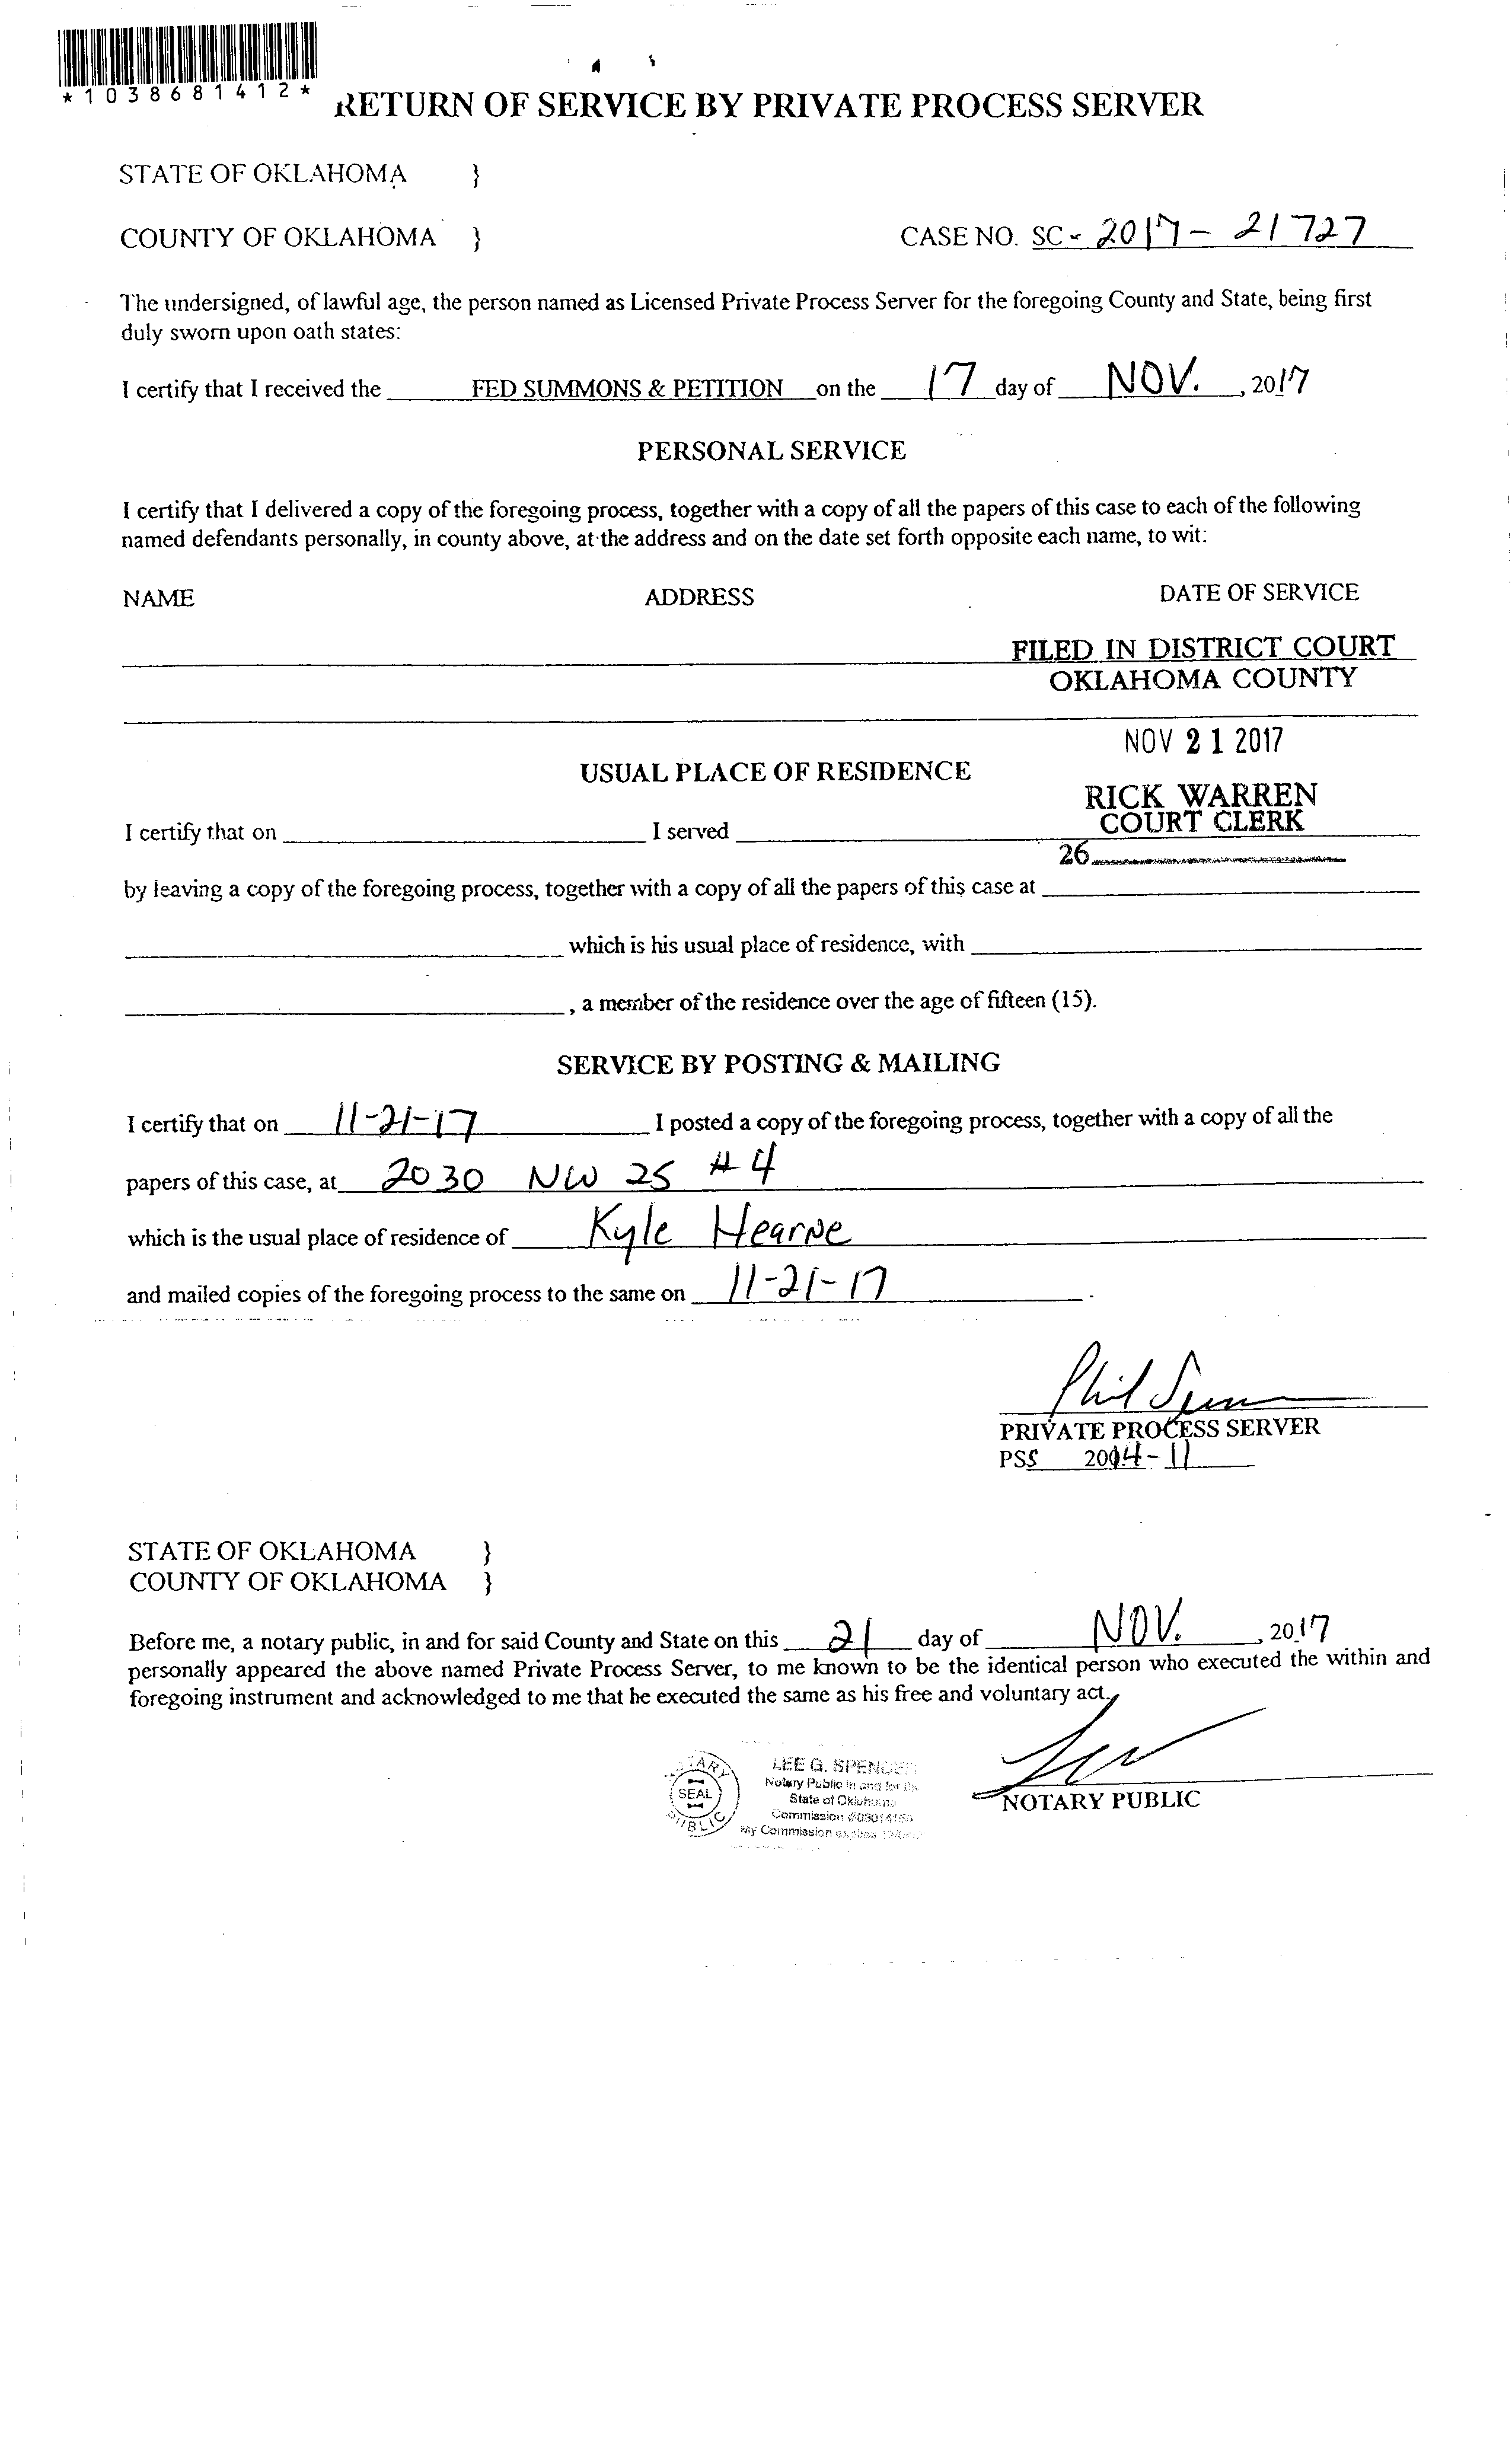 *1038681412*
RETURN OF SERVICE BY PRIVATE PROCESS SERVER
STATE OF OKLAHOMA }
COUNTY OF OKLAHOMA } CASE NO. SC - 2017 - 21727
The undersigned, of lawful age, the person named as Licensed Private Process Server for the foregoing County and State, being first
duly sworn upon oath states:
I certify that I received the FED SUMMONS & PETITION on the 17 day of NOV. , 2017
PERSONAL SERVICE
I certify that I delivered a copy of the foregoing process, together with a copy of all the papers of this case to each of the following
named defendants personally, in county above, at the address and on the date set forth opposite each name, to wit:
NAME ADDRESS DATE OF SERVICE
FILED IN DISTRICT COURT
OKLAHOMA COUNTY
NOV 21 2017
USUAL PLACE OF RESIDENCE
RICK WARREN
COURT CLERK
I certify that on I served
26
by leaving a copy of the foregoing process, together with a copy of all the papers of this case at
which is his usual place of residence, with
, a member of the residence over the age of fifteen (15).
SERVICE BY POSTING & MAILING
I certify that on 11-21-17 I posted a copy of the foregoing process, together with a copy of all the
papers of this case, at 2030 NW 25 #4
which is the usual place of residence of Kyle Hearne
and mailed copies of the foregoing process to the same on 11-21-17 .
Phil
PRIVATE PROCESS SERVER
PSS 2004-11
STATE OF OKLAHOMA }
COUNTY OF OKLAHOMA }
Before me, a notary public, in and for said County and State on this 21 day of NOV. , 2017
personally appeared the above named Private Process Server, to me known to be the identical person who executed the within and
foregoing instrument and acknowledged to me that he executed the same as his free and voluntary act.
LEE G. SPENCER
Notary Public in and for the
State of Oklahoma
SEAL
Commission
My Commission expires
NOTARY PUBLIC